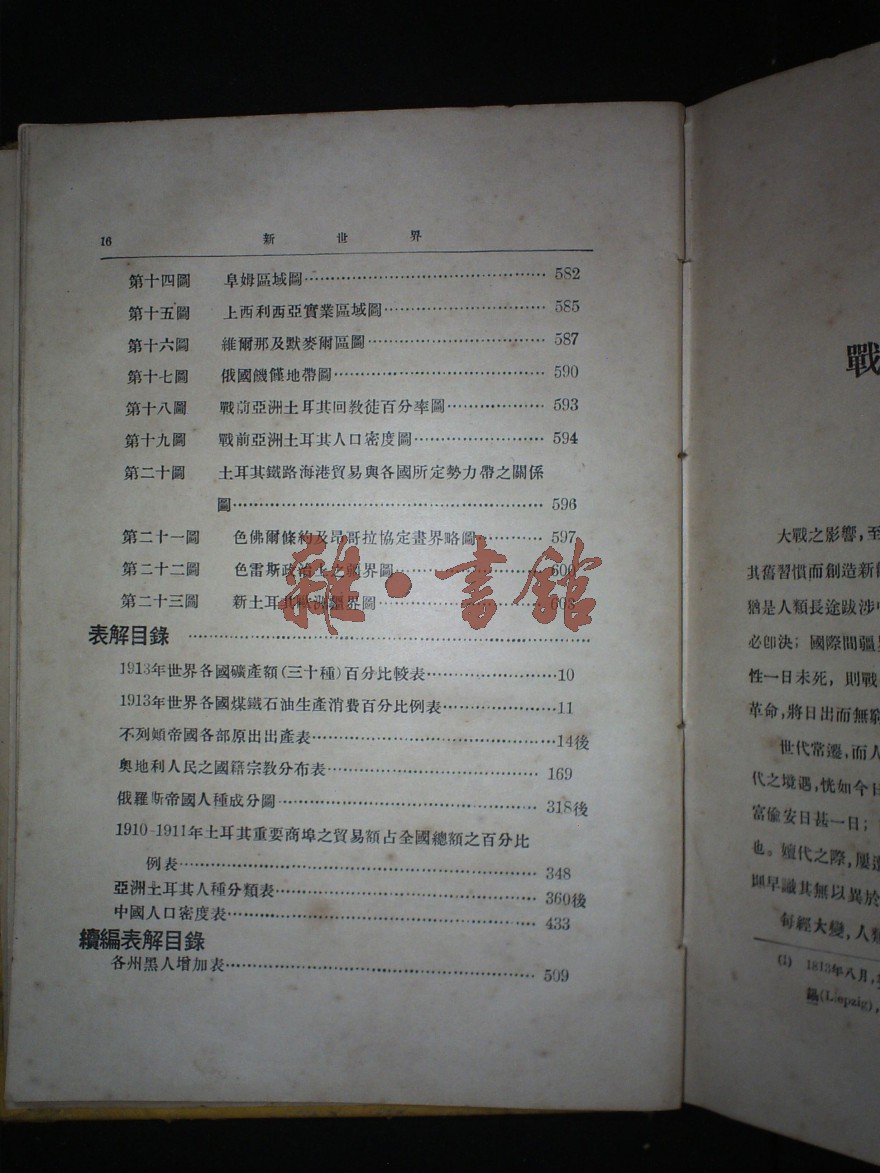 16 新世界
第十四圖 阜姆區域圖 582
第十五圖 上西利西亞實業區域圖 585
第十六圖 維爾那及默麥爾區圖 587
第十七圖 俄國饑饉地帶圖 590
第十八圖 戰前亞洲土耳其回教徒百分率圖 593
第十九圖 戰前亞洲土耳其人口密度圖 594
第二十圖 土耳其鐵路海港貿易與各國所定勢力帶之關係
圖 596
第二十一圖 色佛爾條約及昂哥拉協定畫界略圖 597
第二十二圖 色雷斯政治上之疆界圖 600
第二十三圖 新土耳其歐洲疆界圖 603
雜·書館
表解目錄
1913年世界各國礦產額(三十種)百分比較表 10
1913年世界各國煤鐵石油生產消費百分比例表 11
不列顛帝國各部原出出產表 14後
奧地利人民之國籍宗教分布表 169
俄羅斯帝國人種成分圖 318後
1910-1911年土耳其重要商埠之貿易額占全國總額之百分比
例表 348
亞洲土耳其人種分類表 360後
中國人口密度表 433
續編表解目錄
各州黑人增加表 509
戰
大戰之影響,至
其舊習慣而創造新
猶是人類長途跋涉
必卽決;國際間疆
性一日未死,則戰
革命,將日出而無窮
世代常遷,而人
代之境遇,恍如今日
富偷安日甚一日;
也。嬗代之際,屢遭
卽早識其無以異於
每經大變,人類
(1) 1813年八月,
錫(Leipzig),